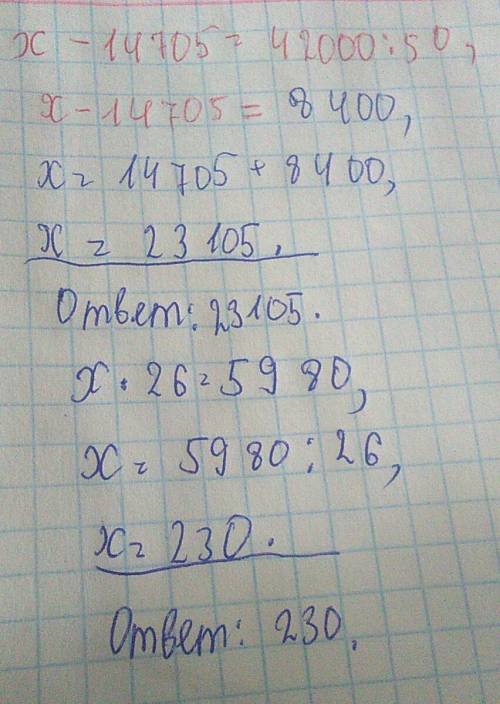 x - 14705 = 42000 : 50,
x - 14705 = 8400,
x = 14705 + 8400,
x = 23105.
Ответ: 23105.
x · 26 = 5980,
x = 5980 : 26,
x = 230.
Ответ: 230.